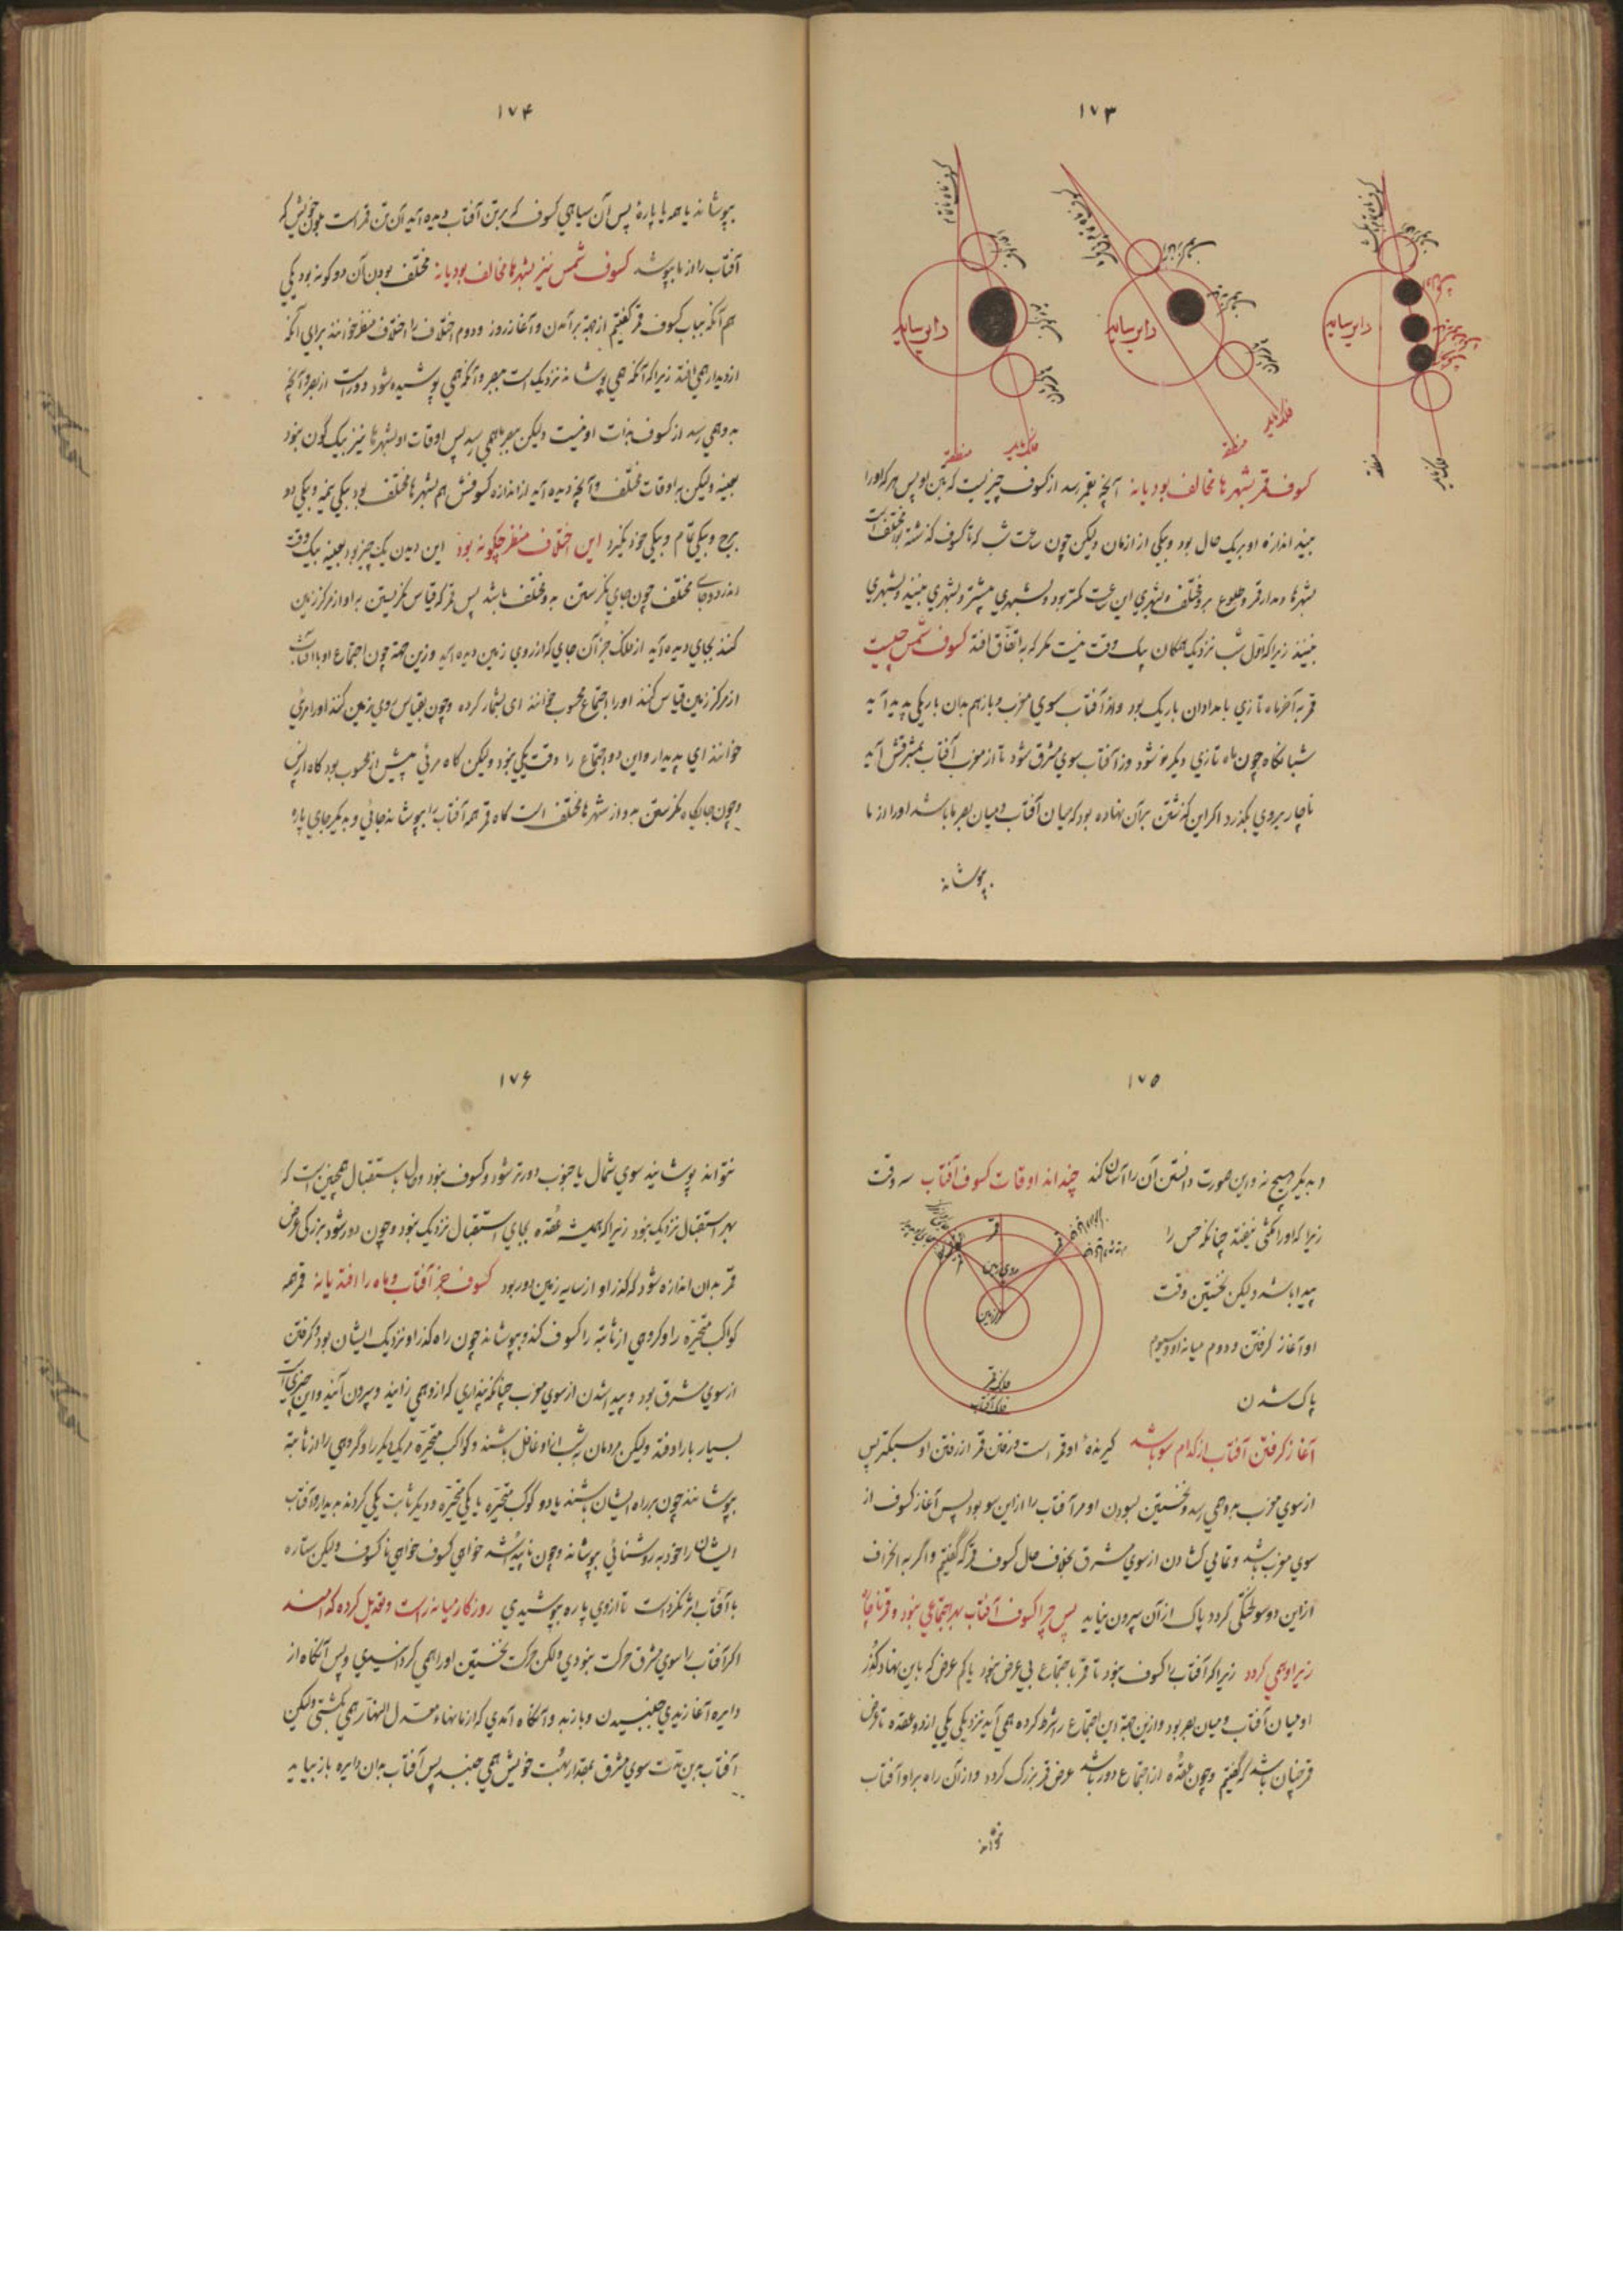 ۱۷۳
دایره سایه
دایره سایه
دایره سایه
منطقه
فلک مایل
منطقه
فلک مایل
منطقه
فلک مایل
کسوف قمر بشهرها مخالف بود یا نه آنچه بقمر رسد از کسوف چیزیست که بتن او پس هرکه او را
بیند اندازه او بر یک حال بود و بیکی از ازمان ولیکن چون ساعت شب که تا کسوف گذشته بود مختلف است
بشهرها و مدار قمر و طلوع برو مختلف بشهری این ساعت کمتر بود و بشهری بیشتر و بشهری بینند و بشهری
نبینند زیرا که اول شب نزدیک همگان بیک وقت نیست مگر که باتفاق افتد کسوف شمس چیست
قمر به آخر ماه تازی بامدادان باریک بود و از آفتاب سوی مغرب و باز هم بدان باریکی پدید آید
شبانگاه چون ماه تازی دیگر نو شود و ز آفتاب سوی مشرق شود تا از مغرب آفتاب بمشرقش آید
ناچار بروی بگذرد اگر این گذشتن بر آن نهاده بود که میان آفتاب و میان بصر ما باشد او را از ما
بپوشاند
۱۷۴
بپوشاند یا همه یا پارهٔ پس آن سیاهی کسوف که بر تن آفتاب دیده آید آن تن قمر است بلون خویش که
آفتاب را از ما بپوشد کسوف شمس نیز بشهرها مخالف بود یا نه مختلف بودن آن دو گونه بود یکی
هم آنکه بباب کسوف قمر گفتیم از جهة برآمدن و آغاز روز و دوم اختلاف را اختلاف منظر خوانند برای آنکه
از دیدار همی افتد زیرا که آنکه همی پوشاند نزدیک است ببصر و آنکه همی پوشیده شود دور است از بصر و آنچه
بدو همی رسد از کسوف بذات او نیست ولیکن ببصر ما همی رسد پس اوقات او بشهرها نیز بیک گون نبود
بعینه ولیکن باوقات مختلف و آنچه دیده آید از اندازه کسوفش هم بشهرها مختلف بود بیکی نیمه و بیکی دو
برج و بیکی تمام و بیکی خود نگیرد این اختلاف منظر چگونه بود این دیدن یک چیز بود بعینه بیک وقت
اندر دو جای مختلف چون جای نگرستن بدو مختلف باشد پس قمر که قیاس نگریستن براو از مرکز زمین
کنند بجای دیده آید از فلک جز آن جای که از روی زمین دیده آید و زین جهة چون اجتماع او با آفتاب
از مرکز زمین قیاس کنند او را اجتماع محسوب خوانند ای بشمار کرده و چون بقیاس روی زمین کنند او را مرئی
خوانند ای پدیدار و این دو اجتماع را وقت یکی نبود ولیکن گاه مرئی پیش از محسوب بود گاه از پس
و چون جایگاه نگرستن بدو از شهرها مختلف است گاه قمر همه آفتاب را بپوشاند جائی و بدیگر جای پاره
۱۷۵
و بدیگر هیچ نه و این صورت دانستن آن را آسان کند چند اند اوقات کسوف آفتاب سه وقت
زیرا که او را مکثی نیفتد چنانکه حس را
پیدا باشد ولیکن نخستین وقت
او آغاز گرفتن و دوم میانه او و سیوم
پاک شدن
قمر
قمر
روی زمین
مرکز زمین
فلک قمر
فلک آفتاب
آغاز گرفتن آفتاب از کدام سو باشد گیرندهٔ او قمر است و رفتن قمر از رفتن او سبکتر پس
از سوی مغرب بدو همی رسد و نخستین بسودن او مر آفتاب را از این سو بود پس آغاز کسوف از
سوی مغرب باشد و تمامی گشادن از سوی مشرق بخلاف حال کسوف قمر که گفتیم و اگر به انحراف
از این دو سو لختکی گردد پاک از آن بیرون نیاید پس چرا کسوف آفتاب بهر اجتماعی نبود و قمر ناچار
زیر او همی گردد زیرا که آفتاب را کسوف نبود تا قمر باجتماع بی عرض نبود یا کم عرض که باین نهاد گذر
او میان آفتاب و میان بصر بود و ازین جهة این اجتماع را شرط کرده همی آید نزدیکی یکی از دو عقده تا عرض
قمر چنان باشد که گفتیم و چون عقده از اجتماع دور باشد عرض قمر بزرگ گردد و از آن راه براو آفتاب
نتواند
۱۷۶
نتواند پوشانید سوی شمال یا جنوب دورتر شود و کسوف نبود و حال باستقبال همچنین است که
بهر استقبال نزدیک نبود زیرا که همیشه عقده بجای استقبال نزدیک نبود و چون دور شود بزرگی عرض
قمر بدان اندازه شود که گذر او از سایه زمین دور بود کسوف جز آفتاب و ماه را افتد یا نه قمر همه
کواکب متحیره را و گروهی از ثابته را کسوف کند و بپوشاند چون راه گذر او نزدیک ایشان بود و گرفتن
از سوی مشرق بود و پیدا شدن از سوی مغرب چنانکه پنداری که ازو همی زایند و بیرون آیند و این چیزی است
بسیار بار اوفتد ولیکن مردمان بشب از او غافل باشند و کواکب متحیره مر یکدیگر را و گروهی را از ثابته
بپوشانند چون بر راه ایشان باشند یا دو کوکب متحیره یا یکی متحیره و دیگر ثابت یکی گردند بدیدار و آفتاب
ایشان را خود بروشنائی بپوشاند و چون ناپیدا شد خواهی کسوف خواهی نا کسوف ولیکن ستاره
با آفتاب اثر نکرده است تا از وی پاره بپوشیدی روزگار میانه راست و تعدیل کرده کدامند
اگر آفتاب را سوی مشرق حرکت نبودی ولکن حرکت نخستین او را همی گردانیدی و پس آنگاه از
دایره آغازیدی جنبیدن و باز بدو آنگاه آمدی که ازمانهاء معدل النهار همی بگشتی ولیکن
آفتاب بدین مدت سوی مشرق بمقدار بهت خویش همی جنبد پس آفتاب بدان دایره باز نیاید